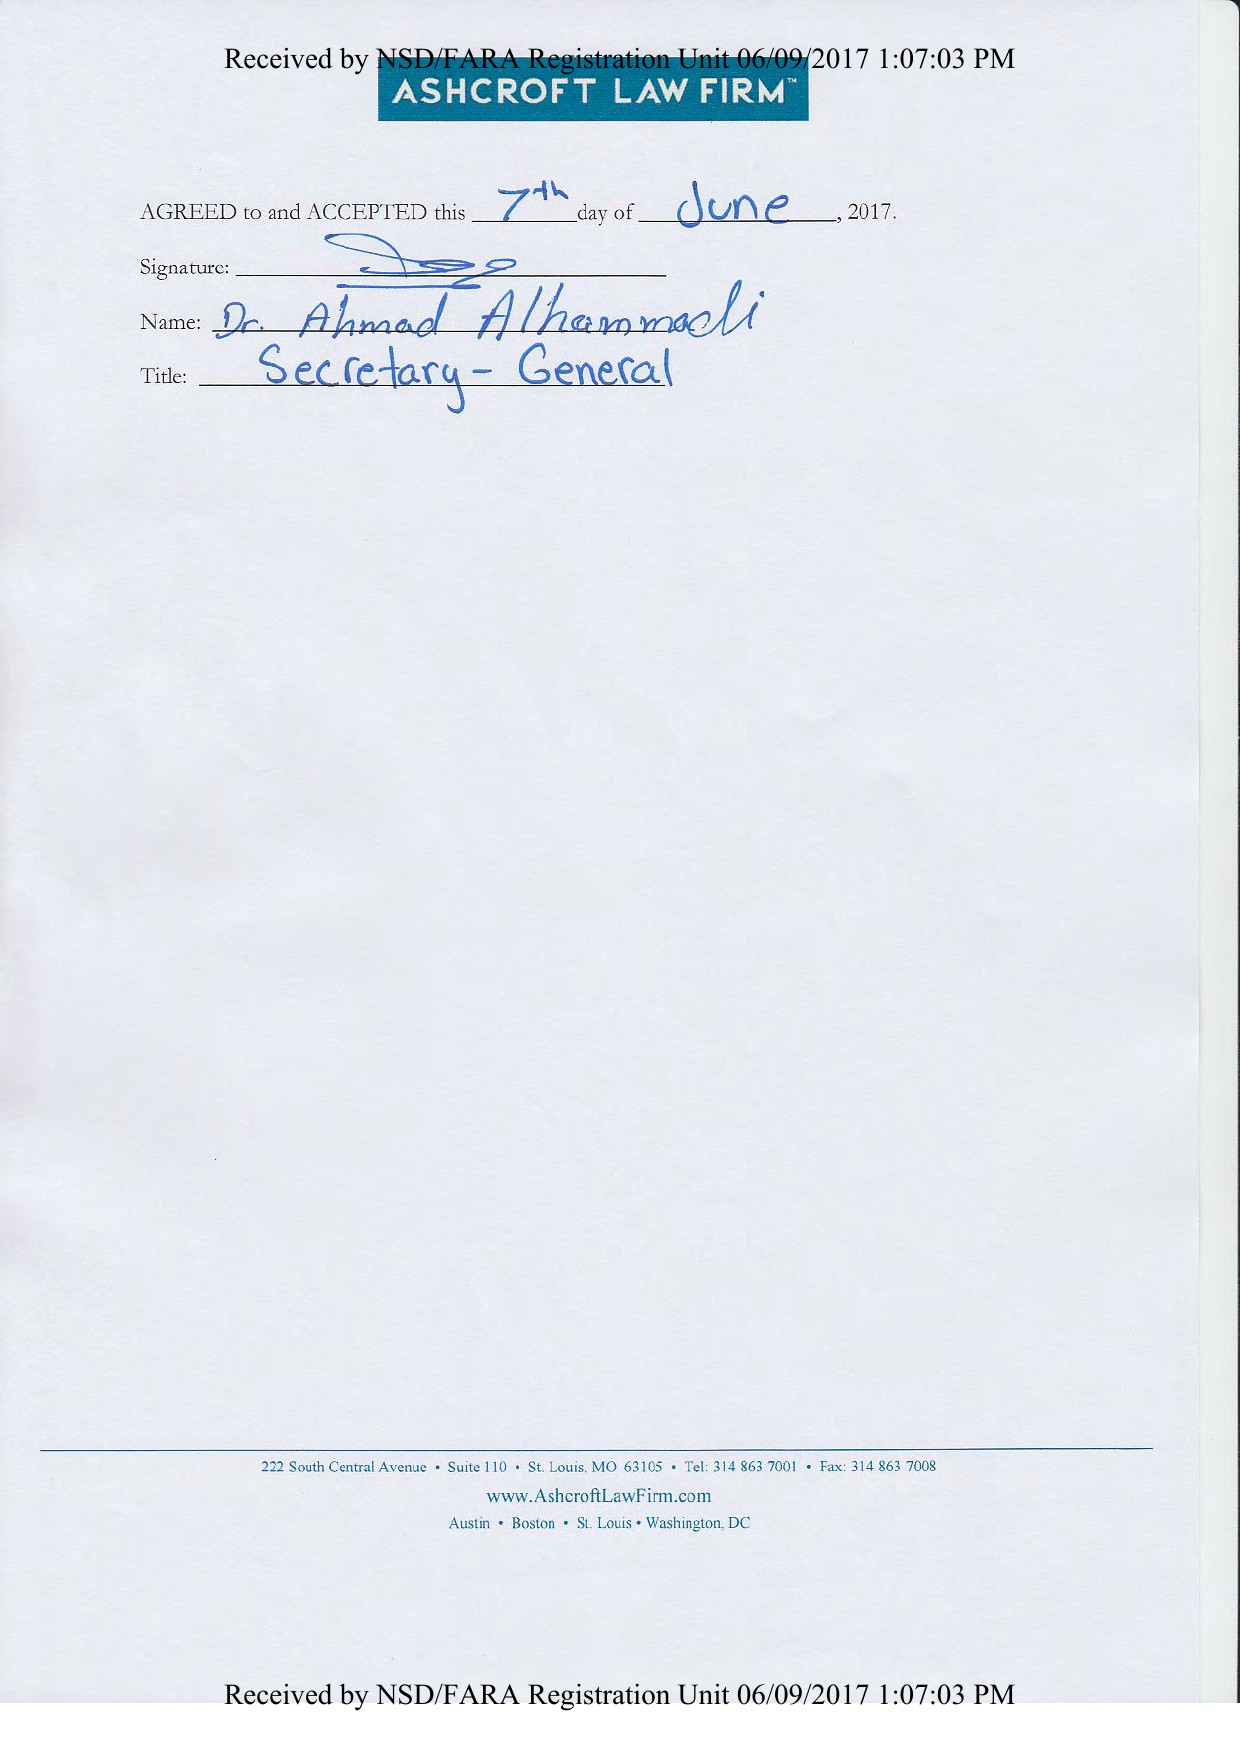 Received by NSD/FARA Registration Unit 06/09/2017 1:07:03 PM
ASHCROFT LAW FIRM™
AGREED to and ACCEPTED this 7th day of June, 2017.
Signature:
Name: Dr. Ahmad Alhammadi
Title: Secretary-General
222 South Central Avenue • Suite 110 • St. Louis, MO 63105 • Tel: 314 863 7001 • Fax: 314 863 7008
www.AshcroftLawFirm.com
Austin • Boston • St. Louis • Washington, DC
Received by NSD/FARA Registration Unit 06/09/2017 1:07:03 PM